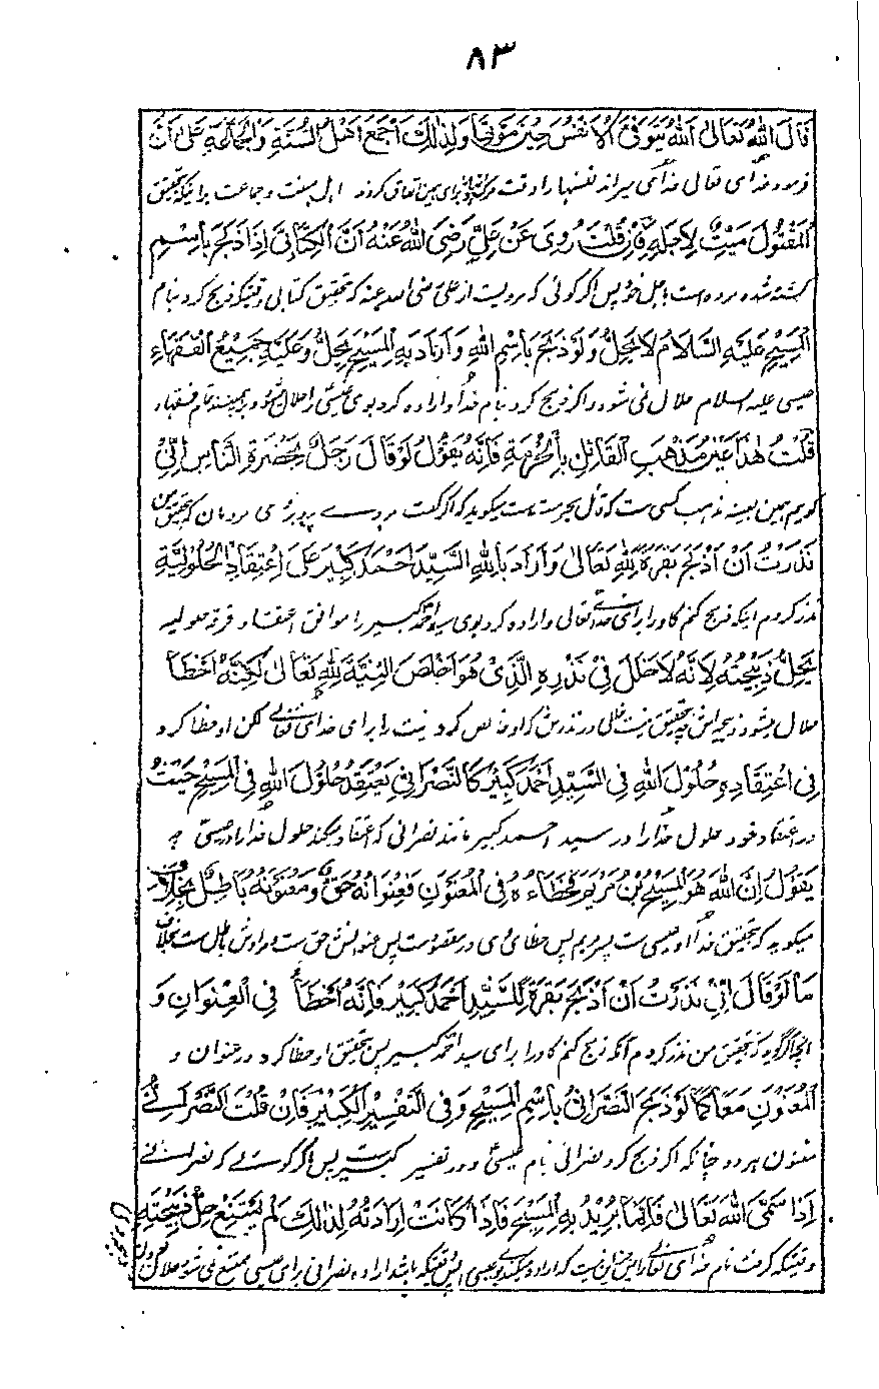 ٨٣
قَالَ اللهُ تَعَالٰى اَللهُ يَتَوَفَّى الْاَنْفُسَ حِيْنَ مَوْتِهَا وَلِذٰلِكَ اَجْمَعَ اَهْلُ السُّنَّةِ وَالْجَمَاعَةِ عَلٰى اَنَّ
فرمود خدای تعالی خدای میراند نفسها را وقت برای همین اتفاق کردند اهل سنت و جماعت برانیکه تحقیق
الْمَقْتُوْلَ مَيِّتٌ لِاَجَلِهِ فَاِنْ قُلْتَ رُوِىَ عَنْ عَلِىٍّ رَضِىَ اللهُ عَنْهُ اَنَّ الْكِتَابِىَّ اِذَا ذَبَحَ بِاسْمِ
کشته شده مرده است باجل خود پس اگر گوئی که مرویست از علی رضی الله عنه که تحقیق کتابی وقتیکه ذبح کرد بنام
الْمَسِيْحِ عَلَيْهِ السَّلَامُ لَا يَحِلُّ وَلَوْ ذَبَحَ بِاسْمِ اللهِ وَاَرَادَ بِهِ الْمَسِيْحَ يَحِلُّ وَعَلَيْهِ جَمِيْعُ الْفُقَهَاءِ
عیسی علیه السلام حلال نمی شود و اگر ذبح کرد بنام خدا و اراده کرد بوی عیسی را حلال شود و برهمینند تمام فقهاء
قُلْتُ هٰذَا عَيْنُ مَذْهَبِ الْقَائِلِ بِالْحُرْمَةِ فَاِنَّهُ يَقُوْلُ لَوْ قَالَ رَجُلٌ بِحَضْرَةِ النَّاسِ اِنِّىْ
گویم همین بعینه مذهب کسی ست که قائل بحرمت ست میگوید که اگر گفت مردے بروبروی مردمان که تحقیق من
نَذَرْتُ اَنْ اَذْبَحَ بَقَرَةً لِلّٰهِ تَعَالٰى وَاَرَادَ بِاللهِ السَّيِّدَ اَحْمَدَ كَبِيْرَ عَلٰى اِعْتِقَادِ الْحُلُوْلِيَّةِ
نذر کردم اینکه ذبح کنم گاو را برای خدای تعالی و اراده کرد بوی سید احمد کبیر را موافق اعتقاد فرقه حلولیه
يَحِلُّ ذَبِيْحَتُهُ لِاَنَّهُ لَا خَلَلَ فِىْ نَذْرِهِ الَّذِىْ هُوَ اَخْلَصَ النِّيَّةَ لِلّٰهِ تَعَالٰى لٰكِنَّهُ اَخْطَأَ
حلال میشود ذبیحه اش چه تحقیق نیست خللی در نذرش که او خالص کرد نیت را برای خدای تعالی لکن او خطا کرد
فِىْ اعْتِقَادِهِ حُلُوْلَ اللهِ فِى السَّيِّدِ اَحْمَدَ كَبِيْرْ كَالنَّصْرَانِىِّ يَعْتَقِدُ حُلُوْلَ اللهِ فِى الْمَسِيْحِ حَيْثُ
در اعتقاد خود حلول خدا را در سید احمد کبیر مانند نصرانی که اعتقاد میکند حلول خدا را در عیسی چه
يَقُوْلُ اِنَّ اللهَ هُوَ الْمَسِيْحُ بْنُ مَرْيَمَ فَخَطَاءُهُ فِى الْمُعَنْوَنِ فَعُنْوَانُهُ حَقٌّ وَمُعَنْوَنُهُ بَاطِلٌ بِخِلَافِ
میگوید که تحقیق خدا او عیسی ست پسر مریم پس خطای وی در معنونست پس عنوانش حق ست و مرادش باطل ست بخلاف
مَا لَوْ قَالَ اِنِّىْ نَذَرْتُ اَنْ اَذْبَحَ بَقَرَةً لِلسَّيِّدِ اَحْمَدَ كَبِيْرْ فَاِنَّهُ اَخْطَأَ فِى الْعِنْوَانِ وَ
آنچه اگر گوید که تحقیق من نذر کردم آنکه ذبح کنم گاو را برای سید احمد کبیر پس تحقیق او خطا کرد در عنوان و
الْمُعَنْوَنِ مَعًا كَمَا لَوْ ذَبَحَ النَّصْرَانِىُّ بِاسْمِ الْمَسِيْحِ وَفِى التَّفْسِيْرِ الْكَبِيْرِ فَاِنْ قُلْتَ النَّصْرَانِىُّ
معنون هر دو چنانکه اگر ذبح کرد نصرانی بنام عیسی و در تفسیر کبیرست پس اگر گوئے که نصرانے
اِذَا سَمَّى اللهَ تَعَالٰى فَاِنَّمَا يُرِيْدُ بِهِ الْمَسِيْحَ فَاِذَا كَانَتْ اِرَادَتُهُ لِذٰلِكَ لَمْ يَمْتَنِعْ حِلُّ ذَبِيْحَتِهِ
وقتیکه گرفت نام خدای تعالی را پس جز این نیست که اراده میکند بوی عیسی پس وقتیکه باشد اراده نصرانی برای عیسی ممتنع نمی شود حلال